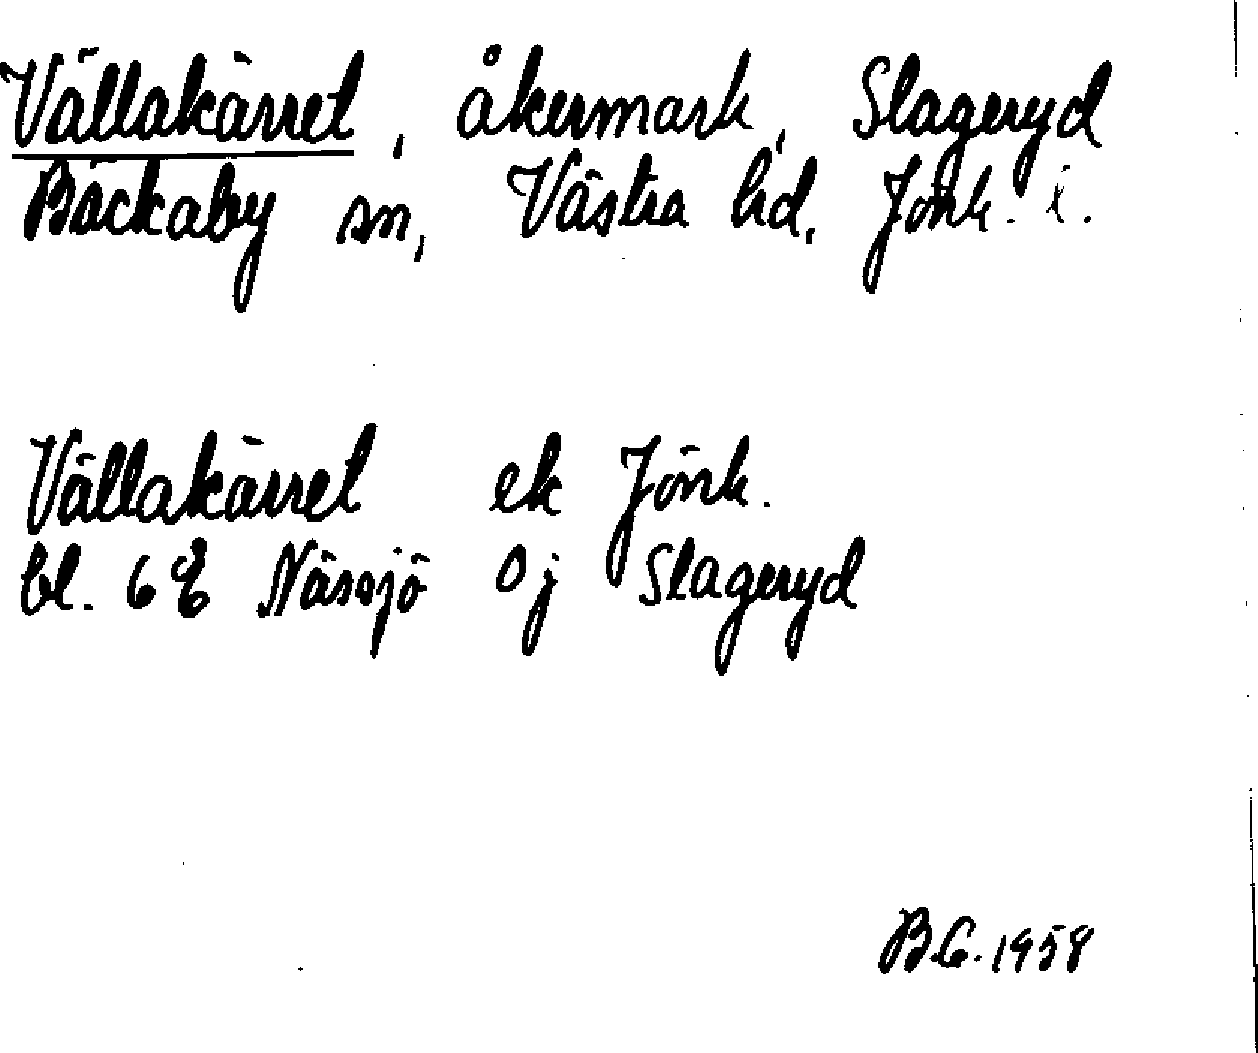 Vällakärret, åkermark, Slageryd
Bäckaby sn, Västra hd, Jönk. l.
Vällakärret ek Jönk.
bl. 6E Nässjö 0j Slageryd
B.G. 1958